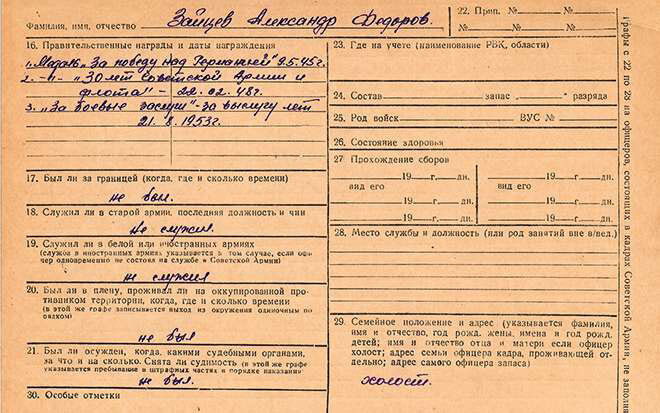 Фамилия, имя, отчество Зайцев Александр Федоров.
16. Правительственные награды и даты награждения
1. „Медаль „За победу над Германией" 9.5.45г.
2. –"– „30 лет Советской Армии и
флота" – 22.02.48г.
3. „За боевые заслуги" – за выслугу лет
21.8.1953г.
17. Был ли за границей (когда, где и сколько времени)
не был.
18. Служил ли в старой армии, последняя должность и чин
Не служил.
19. Служил ли в белой или иностранных армиях
(служба в иностранных армиях указывается в том случае, если офи-
цер одновременно не состоял на службе в Советской Армии)
не служил
20. Был ли в плену, проживал ли на оккупированной про-
тивником территории, когда, где и сколько времени
(в этой же графе записывается выход из окружения одиночным по-
рядком)
не был
21. Был ли осужден, когда, какими судебными органами,
за что и на сколько. Снята ли судимость (в этой же графе
указывается пребывание в штрафных частях и порядке наказания)
не был.
30. Особые отметки
22. Прип. № № №
23. Где на учете (наименование РВК, области)
24. Состав запас разряда
25. Род войск ВУС №
26. Состояние здоровья
27 Прохождение сборов
19 г. дн. 19 г. дн.
вид его вид его
19 г. дн. 19 г. дн.
19 г. дн. 19 г. дн.
28. Место службы и должность (или род занятий вне в/вед.)
29. Семейное положение и адрес (указывается фамилия,
имя и отчество, год рожд. жены, имена и год рожд.
детей; имя и отчество отца и матери если офицер
холост; адрес семьи офицера кадра, проживающей от-
дельно; адрес самого офицера запаса)
холост.
Графы с 22 по 28 на офицеров, состоящих в кадрах Советской Армии, не заполн